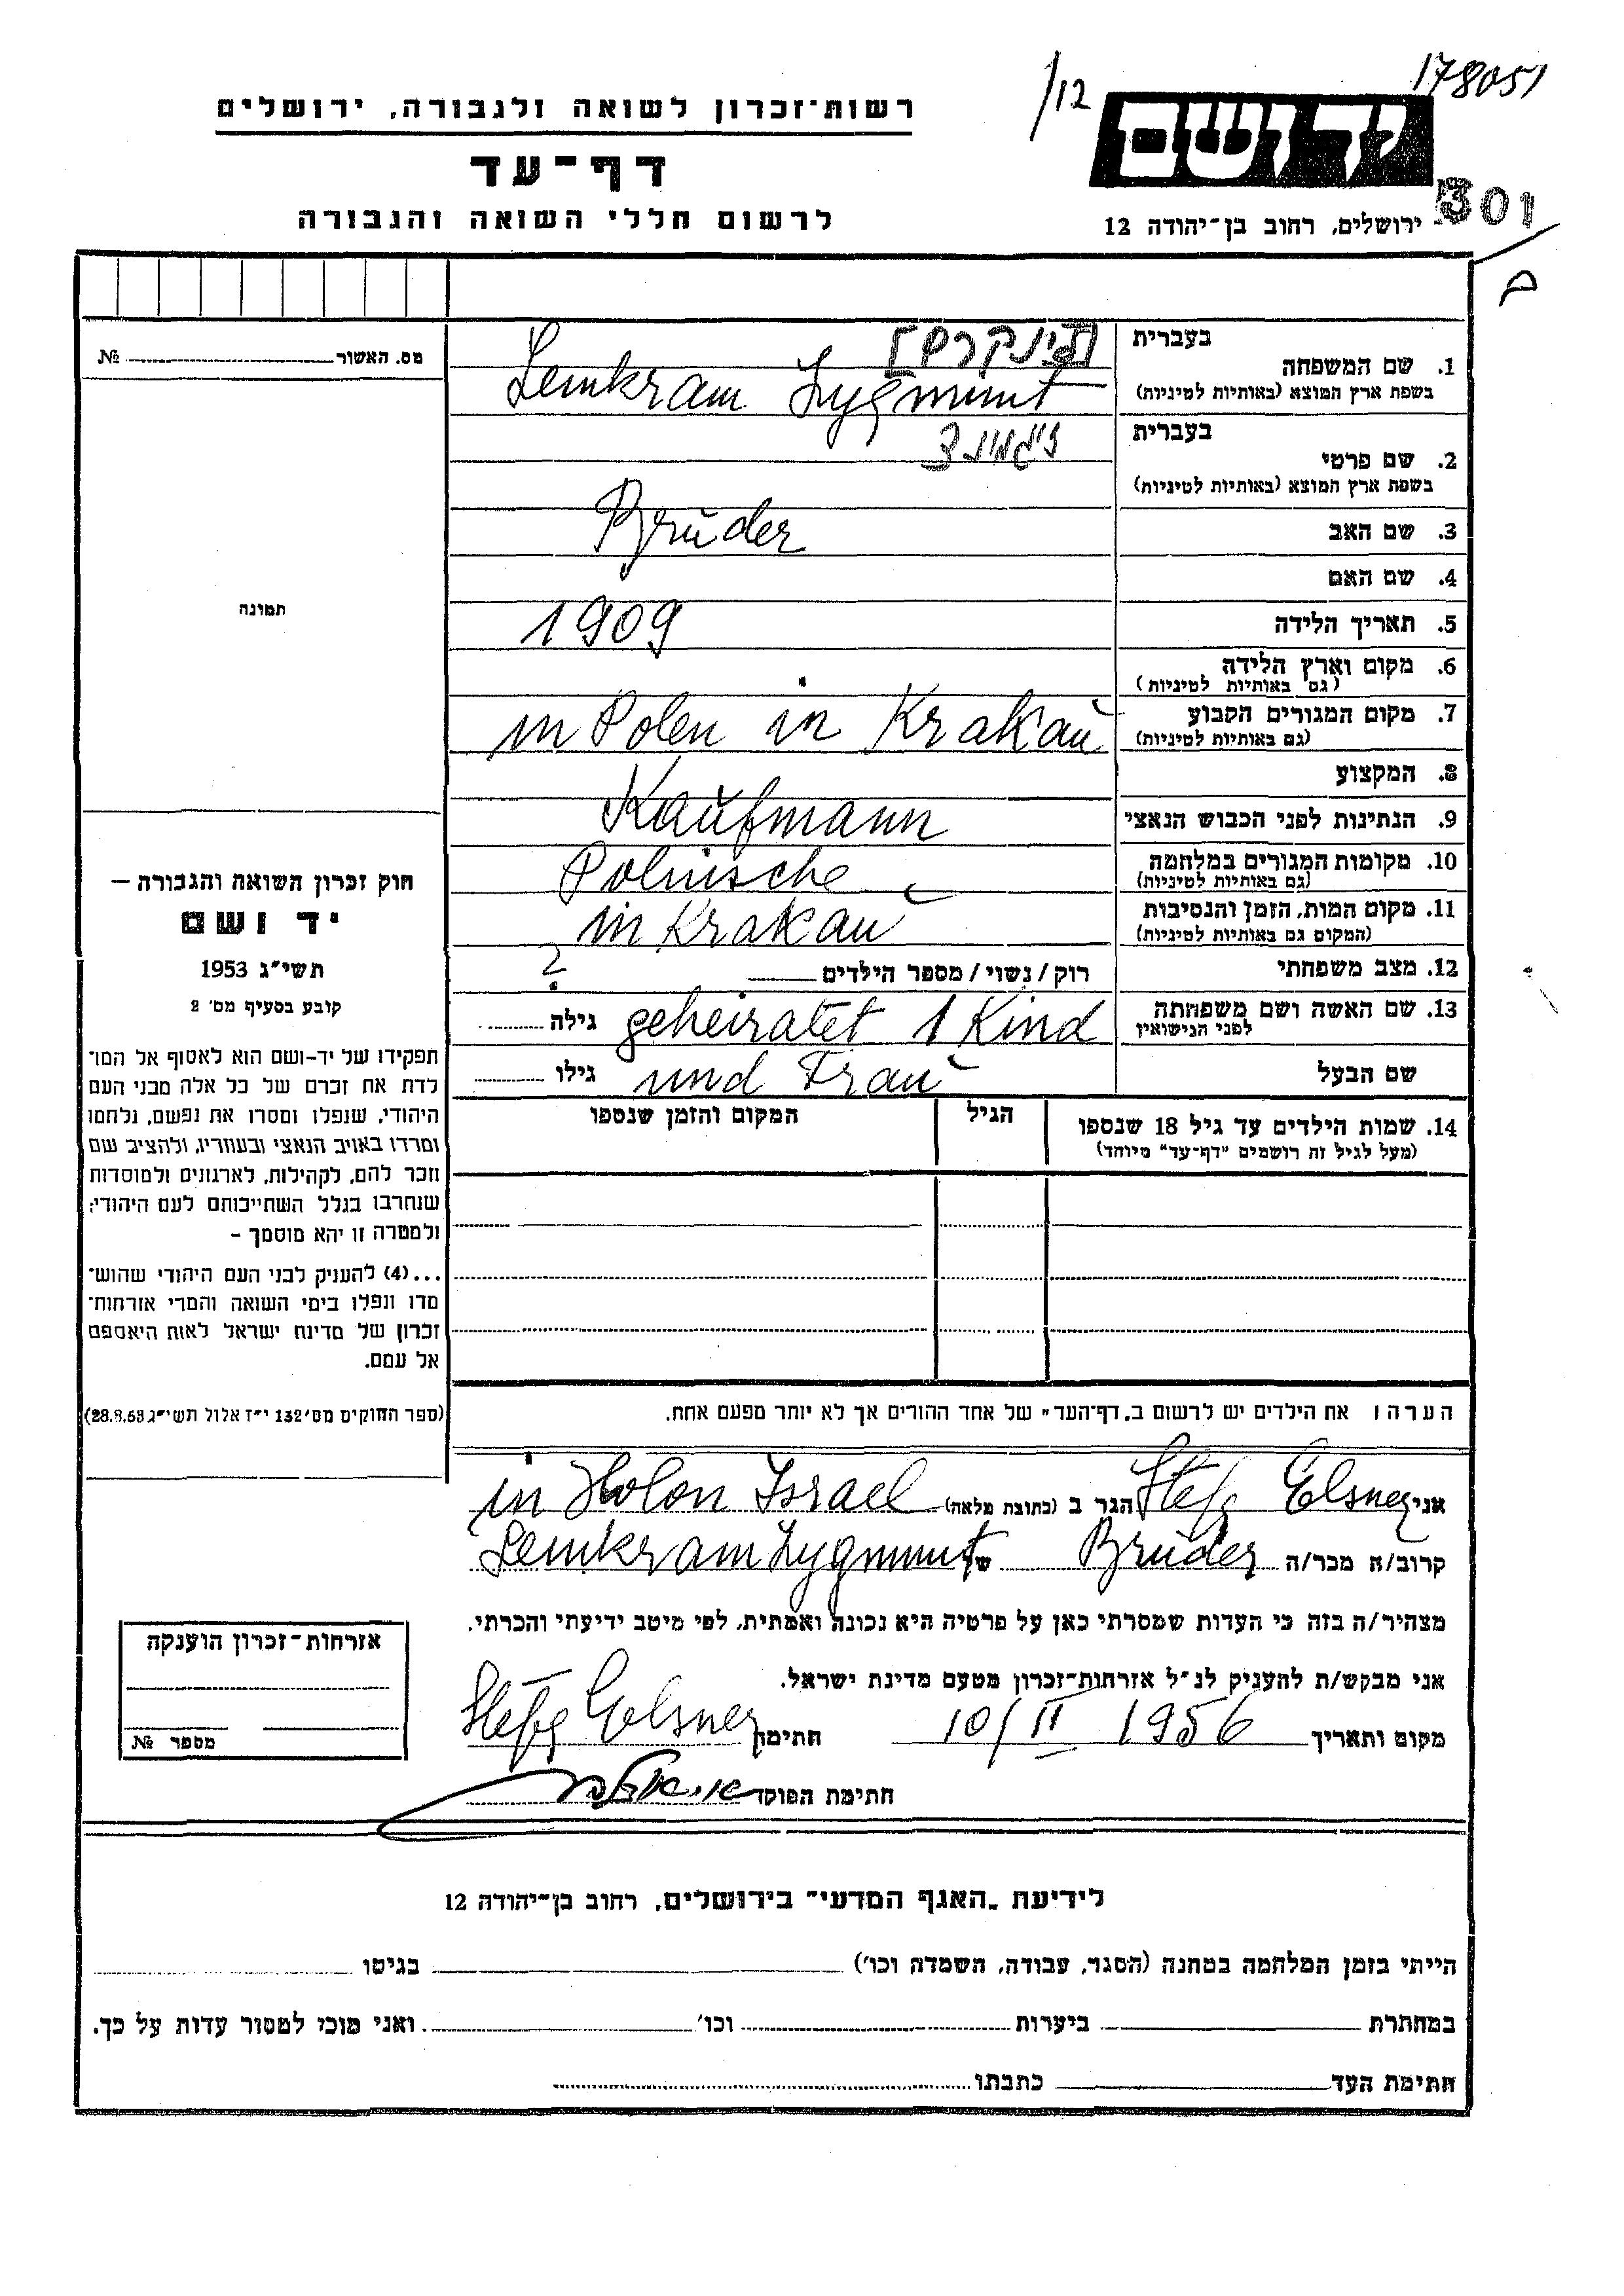 178051
/12
רשות־זכרון לשואה ולגבורה, ירושלים
יד ושם
דף־עד
301
לרשום חללי השואה והגבורה
ירושלים, רחוב בן־יהודה 12
מס. האשור № 
בעברית
1. שם המשפחה
בשפת ארץ המוצא (באותיות לטיניות) Lemkram Zygmunt
בעברית זיגמונד
2. שם פרטי
בשפת ארץ המוצא (באותיות לטיניות)
3. שם האב Brŭder
4. שם האם
תמונה
5. תאריך הלידה 1909
6. מקום וארץ הלידה
(גם באותיות לטיניות)
7. מקום המגורים הקבוע in Polen in Krakaŭ
(גם באותיות לטיניות)
8. המקצוע
9. הנתינות לפני הכבוש הנאצי Kaŭfmann
10. מקומות המגורים במלחמה Polnische
(גם באותיות לטיניות)
11. מקום המות, הזמן והנסיבות in Krakaŭ
(המקום גם באותיות לטיניות)
12. מצב משפחתי רוק/נשוי/מספר הילדים ?
13. שם האשה ושם משפחתה geheiratet 1 Kind גילה
לפני הנישואין
שם הבעל und Fraŭ גילו
14. שמות הילדים עד גיל 18 שנספו
(מעל לגיל זה רושמים "דף־עד" מיוחד)
הגיל
המקום והזמן שנספו
חוק זכרון השואה והגבורה –
יד ושם
תשי״ג 1953
קובע בסעיף מס׳ 2
תפקידו של יד־ושם הוא לאסוף אל המו־
לדת את זכרם של כל אלה מבני העם
היהודי, שנפלו ומסרו את נפשם, נלחמו
ומרדו באויב הנאצי ובעוזריו, ולהציב שם
וזכר להם, לקהילות, לארגונים ולמוסדות
שנחרבו בגלל השתייכותם לעם היהודי;
ולמטרה זו יהא מוסמך –
...(4) להעניק לבני העם היהודי שהוש־
מדו ונפלו בימי השואה והמרי אזרחות־
זכרון של מדינת ישראל לאות היאספם
אל עמם.
(ספר החוקים מס׳ 132 י״ז אלול תשי״ג 28.8.53)
הערה: את הילדים יש לרשום ב„דף־העד" של אחד ההורים אך לא יותר מפעם אחת.
אני Stefa Elsner הגר ב (כתובת מלאה) in Holon Israel
קרוב/ה מכר/ה Brŭder של Lemkram Zygmunt
מצהיר/ה בזה כי העדות שמסרתי כאן על פרטיה היא נכונה ואמתית, לפי מיטב ידיעתי והכרתי.
אני מבקש/ת להעניק לנ״ל אזרחות־זכרון מטעם מדינת ישראל.
מקום ותאריך 10/II 1956 חתימה Stefa Elsner
חתימת הפוקד
אזרחות־זכרון הוענקה
מספר №
לידיעת „האגף המדעי" בירושלים, רחוב בן־יהודה 12
הייתי בזמן המלחמה במחנה (הסגר, עבודה, השמדה וכו׳) בגיטו
במחתרת ביערות וכו׳ ואני מוכן למסור עדות על כך.
חתימת העד כתבתו